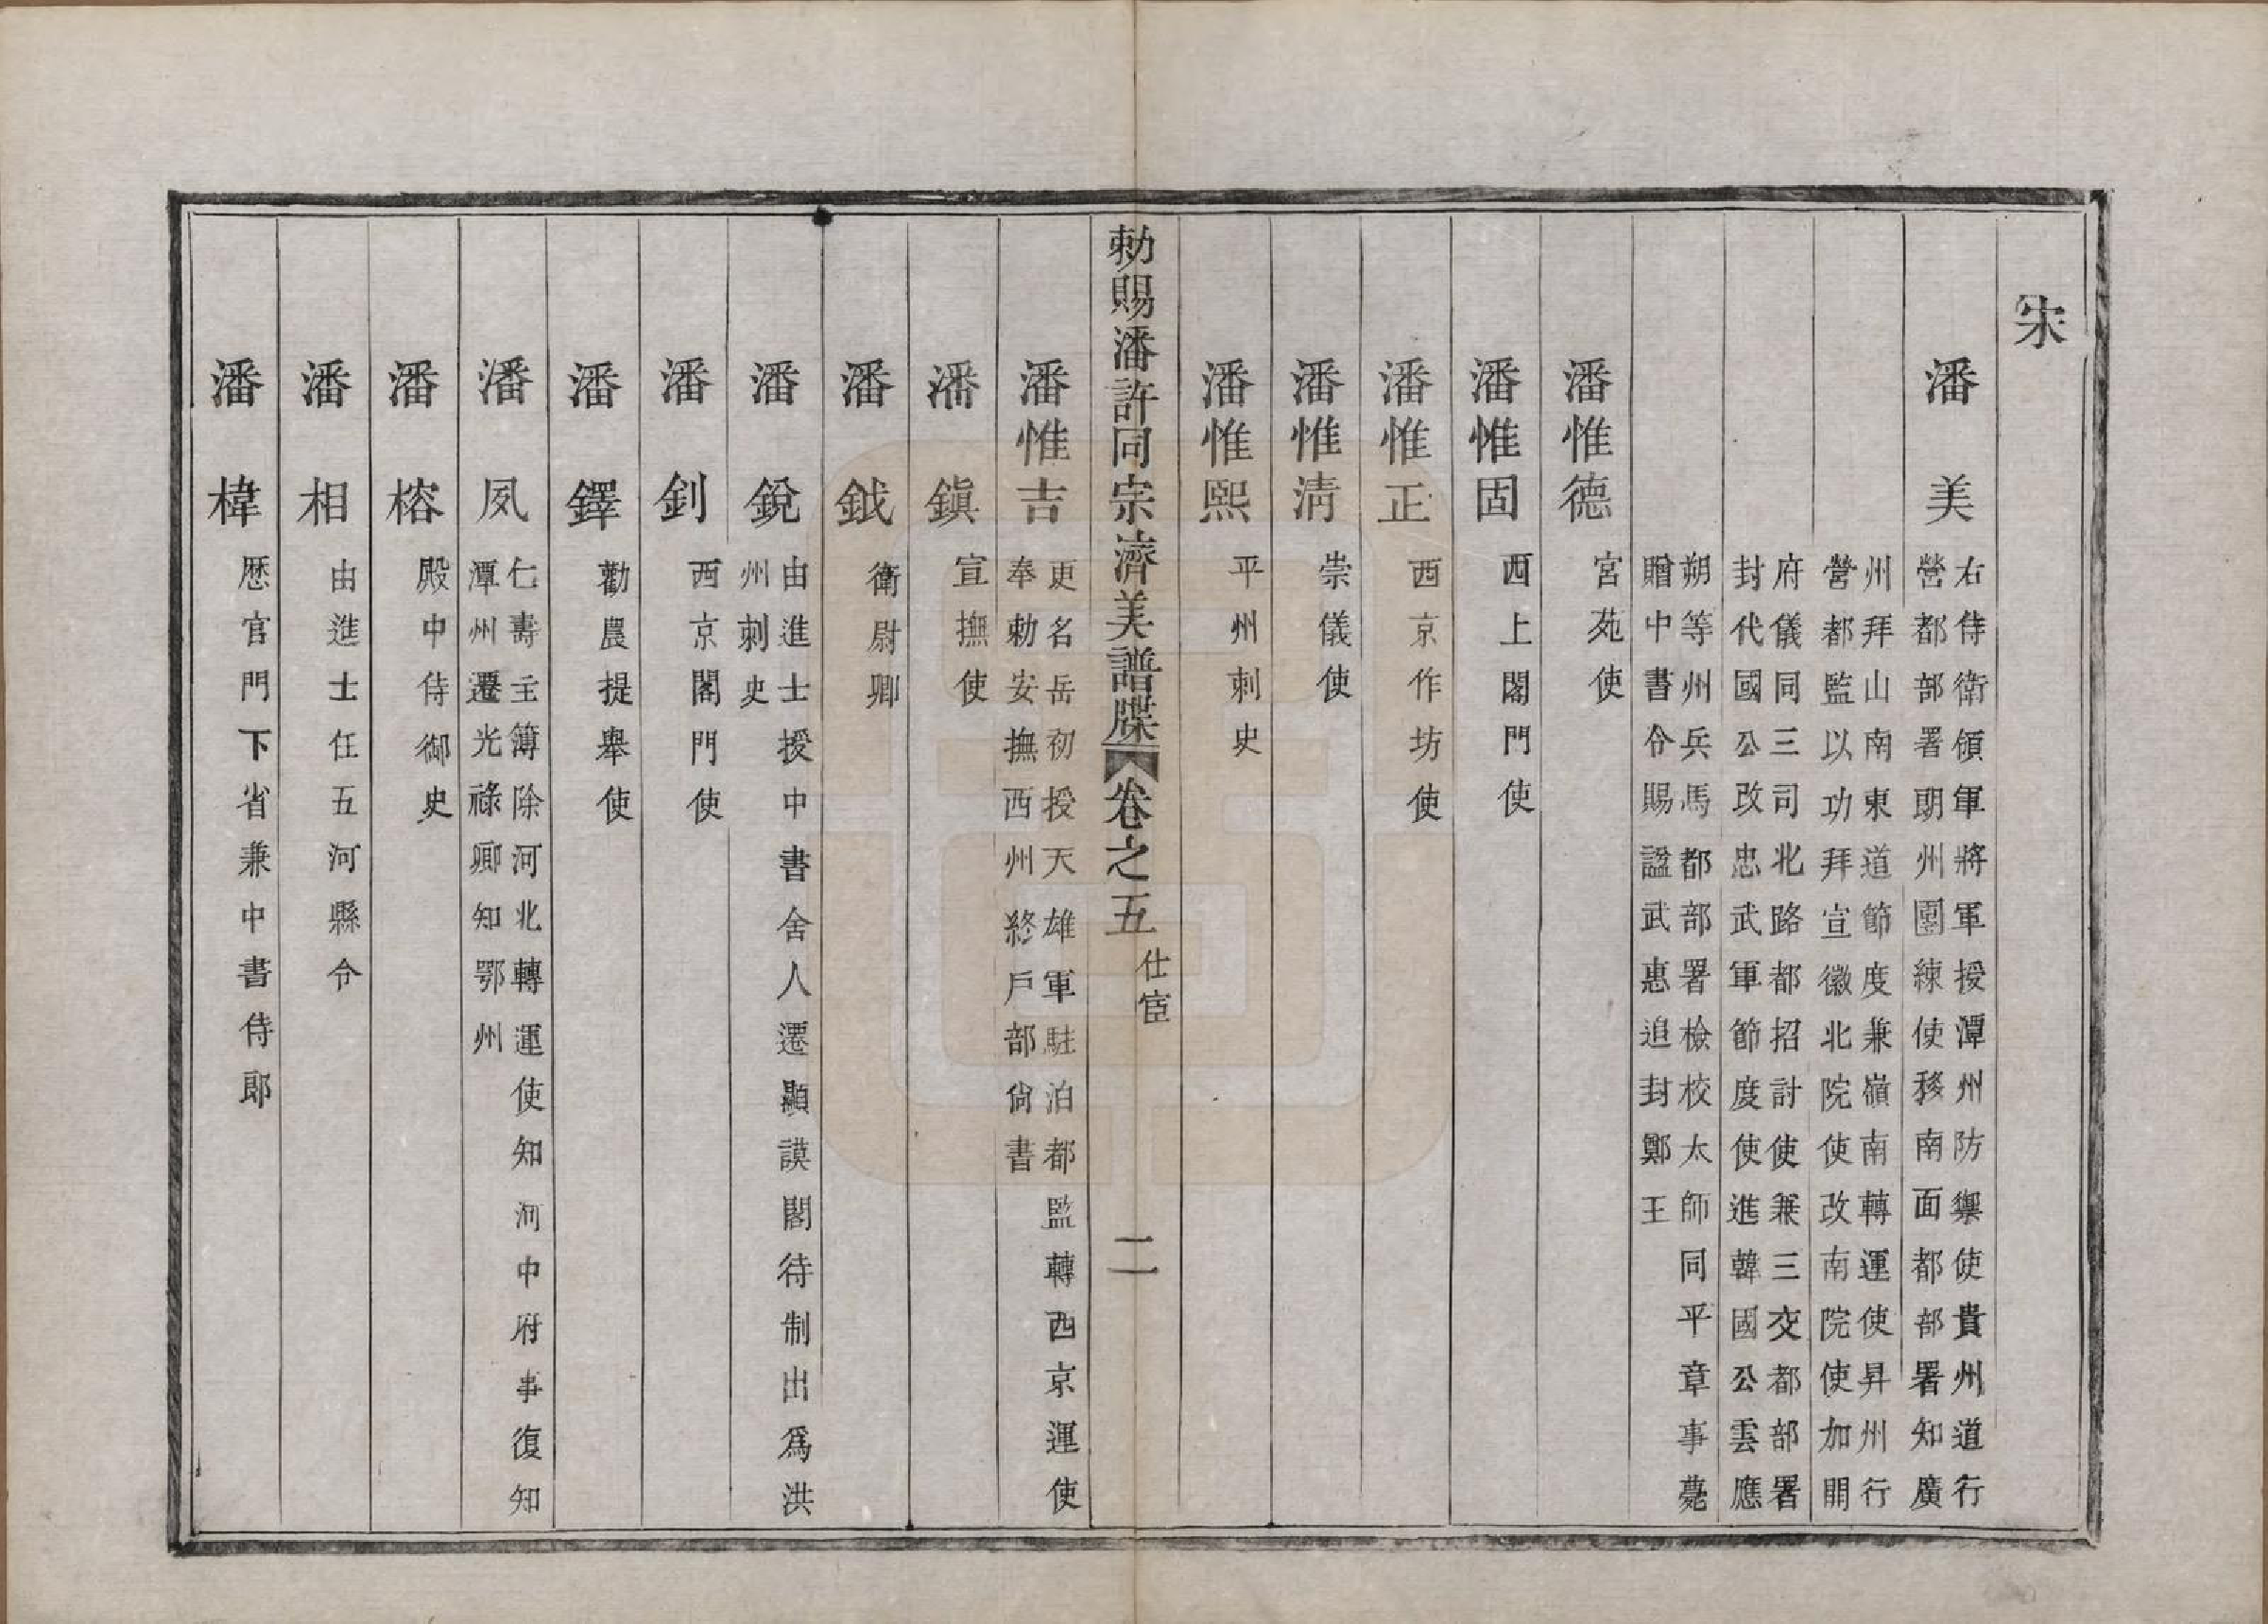 宋
潘美
右侍衛領軍將軍授潭州防禦使貴州道行
營都部署朗州團練使移南面都部署知廣
州拜山南東道節度兼嶺南轉運使昇州行
營都監以功拜宣徽北院使改南院使加開
府儀同三司北路都招討使兼三交都部署
封代國公改忠武軍節度使進韓國公雲應
朔等州兵馬都部署檢校太師同平章事薨
贈中書令賜諡武惠追封鄭王
潘惟德
宮苑使
潘惟固
西上閣門使
潘惟正
西京作坊使
潘惟清
崇儀使
潘惟熙
平州刺史
勅賜潘許同宗濟美譜牒
卷之五
仕宦
二
潘惟吉
更名岳初授天雄軍駐泊都監轉西京運使
奉勅安撫西州終戶部尙書
潘鎮
宣撫使
潘鉞
衛尉卿
潘銳
由進士授中書舍人遷顯謨閣待制出爲洪
州刺史
潘釗
西京閣門使
潘鐸
勸農提舉使
潘夙
仁壽主簿除河北轉運使知河中府事復知
潭州遷光祿卿知鄂州
潘榕
殿中侍御史
潘相
由進士任五河縣令
潘樟
歷官門下省兼中書侍郎